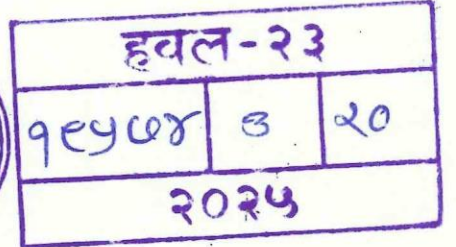 हवल-२३
१९५७४ ३ २०
२०२५